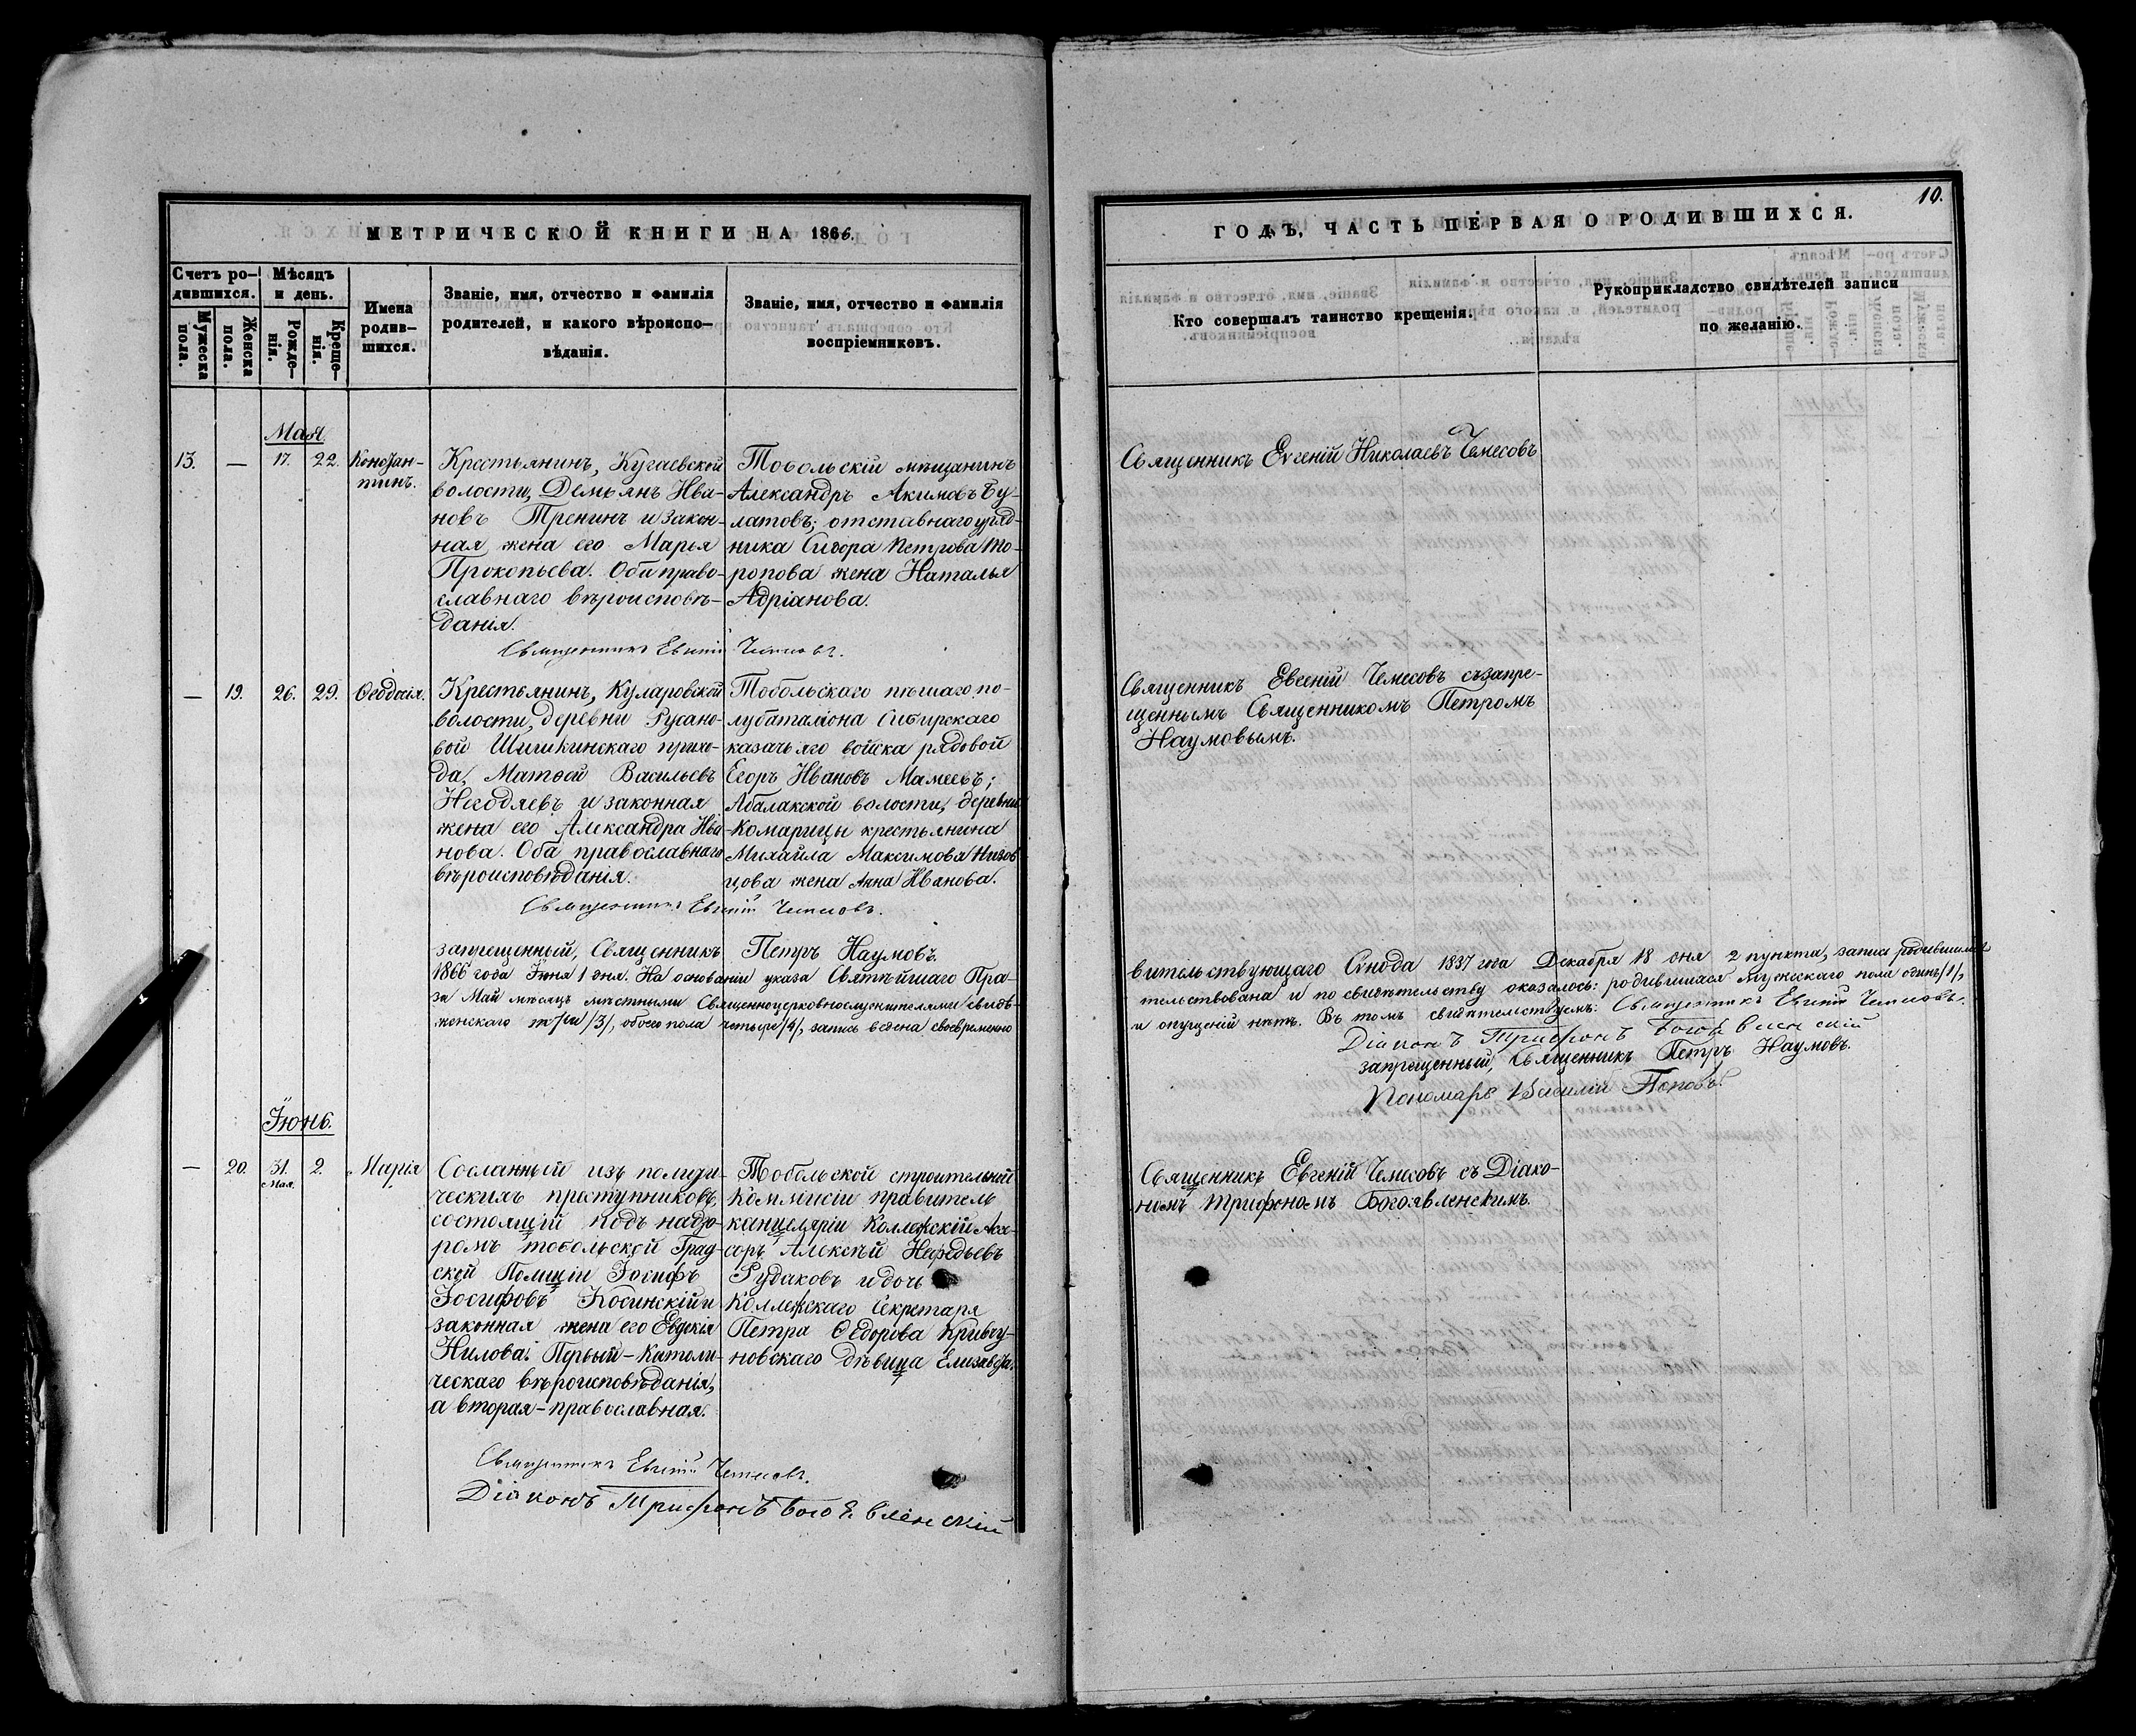 МЕТРИЧЕСКОЙ КНИГИ НА 1866.
Счетъ ро-
дившихся.
Мѣсяцъ
и день.
Мужеска
пола.
Женска
пола.
Рожде-
нія.
Креще-
нія.
Имена
родив-
шихся.
Званіе, имя, отчество и фамилія
родителей, и какого вѣроиспо-
вѣданія.
Званіе, имя, отчество и фамилія
воспріемниковъ.
Мая
13. — 17. 22. Констан-
тинъ.
Крестьянинъ, Кугаевской
волости, Демьянъ Ива-
новъ Тренинъ и закон-
ная жена его Марья
Прокопьева. Оба право-
славнаго вѣроисповѣ-
данія.
Тобольскій мѣщанинъ
Александръ Акимовъ Бу-
латовъ; отставнаго уряд-
ника Сидора Петрова То-
ропова жена Наталья
Адріанова.
Священникъ Евгеній Чемесовъ.
— 19. 26. 29. Ѳеодосія.
Крестьянинъ, Куларовской
волости, деревни Русано-
вой Шишкинскаго прихо-
да, Матѳей Васильевъ
Негодяевъ и законная
жена его Александра Ива-
нова. Оба православнаго
вѣроисповѣданія.
Тобольскаго пѣшаго по-
лубаталіона Сибирскаго
казачьяго войска рядовой
Егоръ Ивановъ Мамеевъ;
Абалакской волости, деревни
Комарицы крестьянина
Михайла Максимова Низов
цова жена Анна Иванова.
Священникъ Евгеній Чемесовъ.
запрещенный, Священникъ Петръ Наумовъ.
1866 года Іюня 1 дня. На основаніи указа Святѣйшаго Пра-
за Май мѣсяцъ мѣстными Священноцерковнослужителями свидѣ-
женскаго три /3/, обоего пола четыре /4/, запись ведена своевременно
Іюнь.
— 20. 31. 2. Марія
Мая.
Сосланный изъ полити-
ческихъ преступниковъ,
состоящій подъ надзо-
ромъ тобольской Град-
ской Полиціи Іосифъ
Іосифовъ Косинскій и
законная жена его Евдокія
Нилова: Первый - католи-
ческаго вѣроисповѣданія,
а вторая - православная.
Тобольской строительной
Коммисіи правитель
канцеляріи Коллежскій Асес-
соръ Алексѣй Мефодьевъ
Рудаковъ и дочь
Коллежскаго Секретаря
Петра Ѳедорова Кривцу-
новскаго дѣвица Елизавета.
Священникъ Евгеній Чемесовъ.
Діаконъ Трифонъ Богоявленскій
10.
ГОДЪ, ЧАСТЬ ПЕРВАЯ О РОДИВШИХСЯ.
Кто совершалъ таинство крещенія.
Рукоприкладство свидѣтелей записи
по желанію.
Священникъ Евгеній Николаевъ Чемесовъ
Священникъ Евгеній Чемесовъ съ запре-
щеннымъ Священникомъ Петромъ
Наумовымъ.
вительствующаго Сѵнода 1837 года Декабря 18 дня 2 пункта, запись родившимся
тельствована и по свидѣтельству оказалось: родившихся мужескаго пола одинъ /1/,
и опущеній нѣтъ. Въ томъ свидѣтельствуемъ: Священникъ Евгеній Чемесовъ.
Діаконъ Трифонъ Богоявленскій
запрещенный, Священникъ Петръ Наумовъ.
Пономарь Василій Поповъ.
Священникъ Евгеній Чемесовъ съ Діако-
номъ Трифономъ Богоявленскимъ.